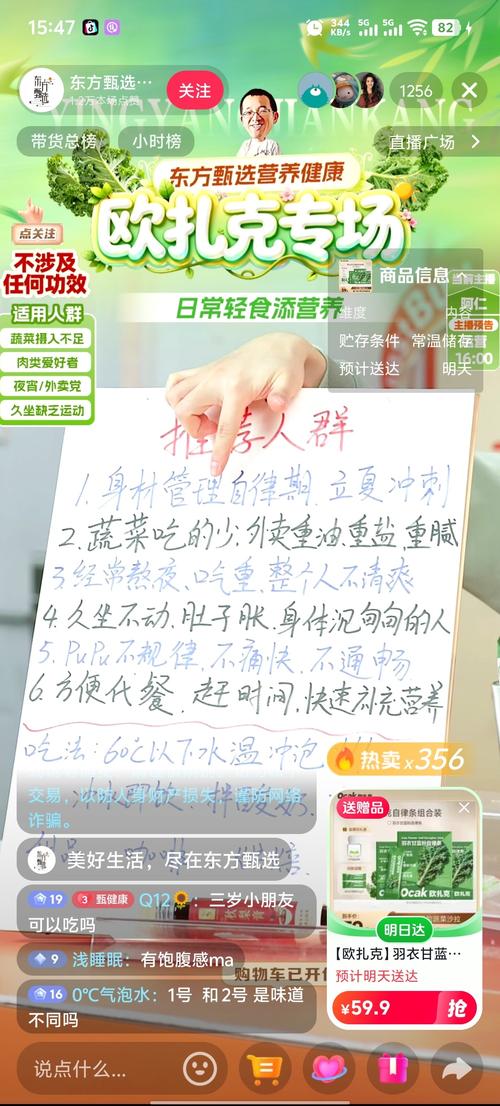 15:47
344 KB/s 5G 5G 82
东方甄选…
1.2万本场点赞
关注
1256
YINGYANG JIANKANG
带货总榜
小时榜
直播广场
东方甄选营养健康
欧扎克专场
点关注
不涉及
任何功效
日常轻食添营养
适用人群
蔬菜摄入不足
肉类爱好者
夜宵/外卖党
久坐缺乏运动
商品信息
维度 内容
贮存条件 常温储存
预计送达 明天
当前主播
阿仁
主播预告
16:00
推荐人群
1、身材管理自律期 立夏冲刺
2.蔬菜吃的少:外卖重油.重盐.重腻
3.经常熬夜、吃重、整个人不清爽
4.久坐不动.肚子胀.身体沉甸甸的人
5.PuPu不规律.不痛快.不通畅
6.方便代餐.赶时间.快速补充营养
吃法:60℃以下水温冲泡
热卖×356
交易，以防人身财产损失，谨防网络
诈骗。
美好生活，尽在东方甄选
19 3 甄健康 Q12🌻：三岁小朋友
可以吃吗
9 浅睡眠：有饱腹感ma
16 0℃气泡水：1号 和2号 是味道
不同吗
购物车已开
送赠品
自律条组合装
Ocak 欧扎克
明日达
【欧扎克】羽衣甘蓝…
预计明天送达
¥59.9 抢
说点什么…